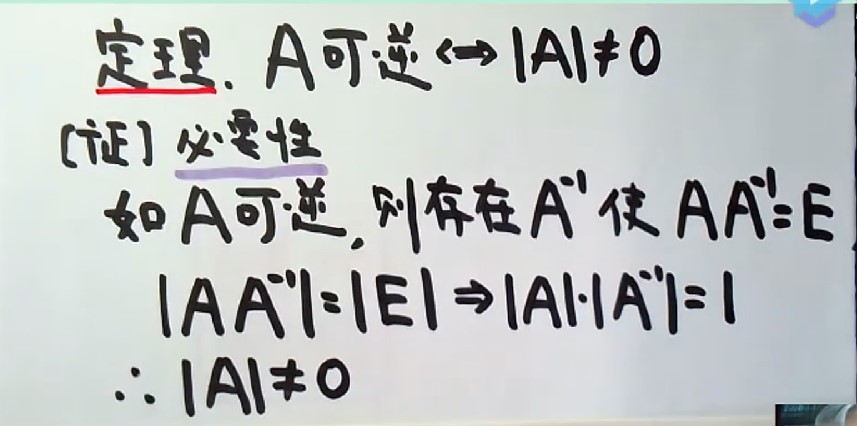 定理. A可逆⇔|A|≠0
[证] 必要性
如A可逆,则存在A⁻¹使 AA⁻¹=E
|AA⁻¹|=|E|⇒|A|·|A⁻¹|=1
∴|A|≠0